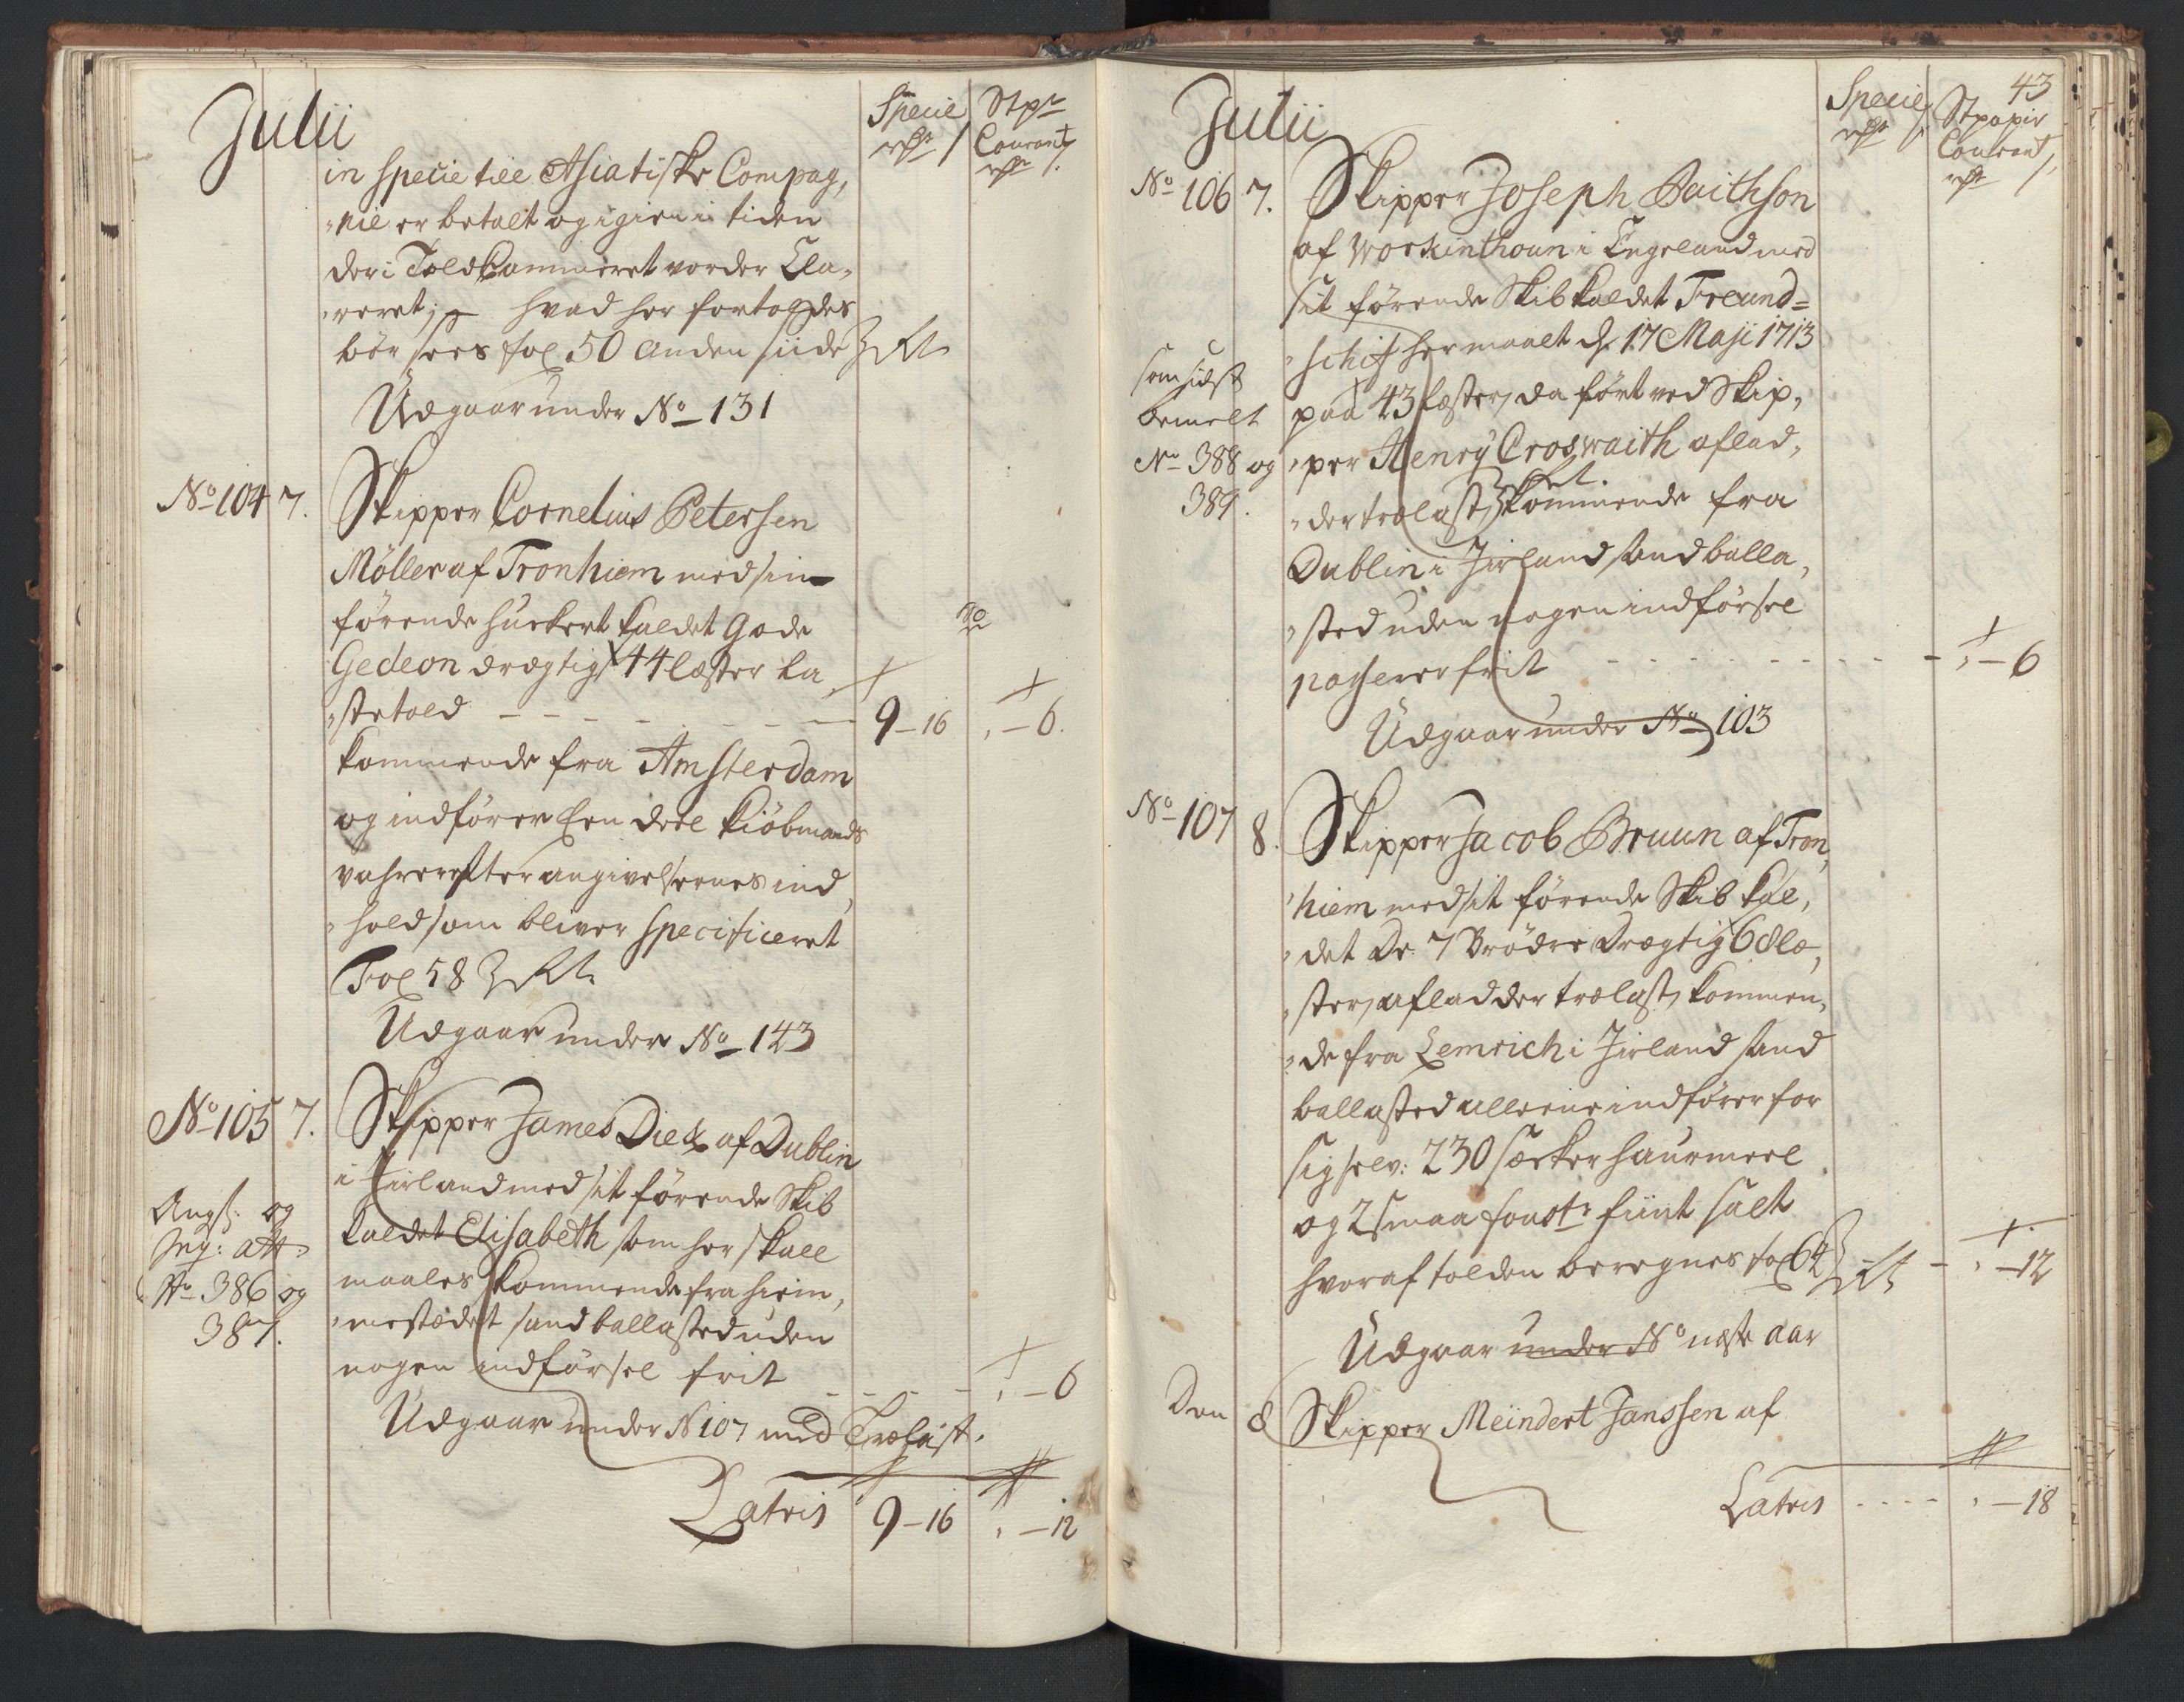 Julii
Specie
rdr /
Stpr
Courant
rdr /.
in specie till Asiatiske Compag,
"nie er betalt og igien i tiden
der i Told Cammeret vorder Cla,
"reret; hvad her fortoldes
bør sees fol 50 anden siide
Udgaar under No 131
No 104 7. Skipper Cornelius Petersen
Møller af Tronhiem med sin
førende huckert kaldet Gode
Gedeon drægtig 44 læster La
"stetold - - - - - - 9-16 , -6.
kommende fra Amsterdam
og indfører Een deel kiøbmands
vahrer efter angivelsernes ind
"hold som bliver specificeret
Fol 58
Udgaar under No 143
No 105 7. Skipper James Dick af Dublin
i Jirland med sit førende Skib
kaldet Elisabeth som her skall
maales kommende fra hiem,
"mestædet sandballasted uden
nogen indførsel frit - - - - , -6
Angf: og
Jng: att:
No 386 og
387.
Udgaar under N 107 med Trælast.
Latris 9-16 , -12
43
Julii
Specie
rdr /
Stpapir
Courant
rdr /.
No 106 7. Skipper Joseph Paithson
af Workinthoun i Engeland med
sit førende Skib kaldet Freund=
"schif her maalt d. 17 Maji 1713
paa 43 læster, da ført ved Skip,
"per Henry Croswaith aflad,
"der trælast, kommende fra
Dublin i Jirland sandballa,
"sted uden nogen indførsel
passerer frit - - - - - - , -6
som sidst
bemelt
No 388 og
389.
Udgaar under No 103
No 107 8. Skipper Jacob Bruun af Tron,
"hiem med sit førende Skib kal,
"det De 7 Brødre drægtig 68 læ,
"ster, aflader trælast, kommen,
"de fra Lemrich i Jirland sand
ballasted alleene indfører for
sig selv: 230 sæcker haurmeel
og 2 smaa fonst: fiint salt
hvoraf tolden beregnes fol 64 - , -12
Udgaar under No næste aar
Den 8 Skipper Meindert Janssen af
Latris - - - - , -18